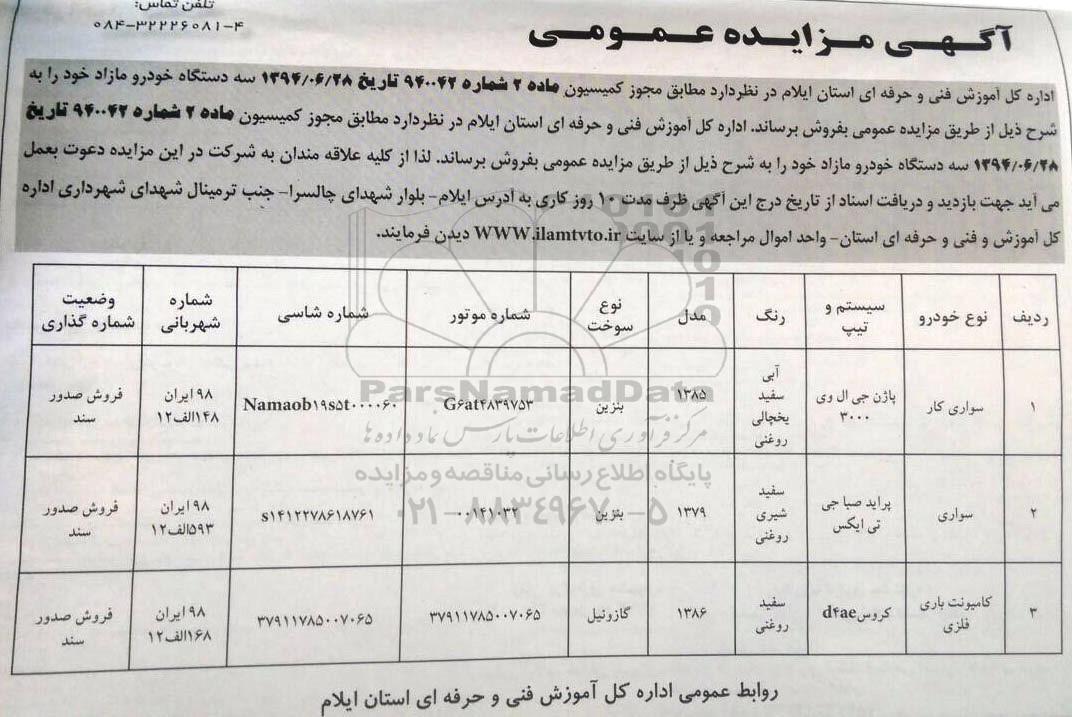 تلفن تماس:
۰۸۴-۳۲۲۲۶۰۸۱-۴
آگهی مزایده عمومی
اداره کل آموزش فنی و حرفه ای استان ایلام در نظردارد مطابق مجوز کمیسیون ماده ۲ شماره ۹۴۰۰۴۲ تاریخ ۱۳۹۴/۰۶/۲۸ سه دستگاه خودرو مازاد خود را به
شرح ذیل از طریق مزایده عمومی بفروش برساند. اداره کل آموزش فنی و حرفه ای استان ایلام در نظردارد مطابق مجوز کمیسیون ماده ۲ شماره ۹۴۰۰۴۲ تاریخ
۱۳۹۴/۰۶/۲۸ سه دستگاه خودرو مازاد خود را به شرح ذیل از طریق مزایده عمومی بفروش برساند. لذا از کلیه علاقه مندان به شرکت در این مزایده دعوت بعمل
می آید جهت بازدید و دریافت اسناد از تاریخ درج این آگهی ظرف مدت ۱۰ روز کاری به آدرس ایلام- بلوار شهدای چالسرا- جنب ترمینال شهدای شهرداری اداره
کل آموزش و فنی و حرفه ای استان- واحد اموال مراجعه و یا از سایت WWW.ilamtvto.ir دیدن فرمایند.
ردیف نوع خودرو سیستم و تیپ رنگ مدل نوع سوخت شماره موتور شماره شاسی شماره شهربانی وضعیت شماره گذاری
۱ سواری کار پاژن جی ال وی ۳۰۰۰ آبی سفید یخچالی روغنی ۱۳۸۵ بنزین G۶at۴۸۳۹۷۵۳ Namaob۱۹s۵t۰۰۰۰۶۰ ۹۸ ایران ۱۴۸الف۱۲ فروش صدور سند
۲ سواری پراید صبا جی تی ایکس سفید شیری روغنی ۱۳۷۹ بنزین ۰۰۱۴۱۰۳۲ s۱۴۱۲۲۷۸۶۱۸۷۶۱ ۹۸ ایران ۵۹۳الف۱۲ فروش صدور سند
۳ کامیونت باری فلزی کروسd۴ae سفید روغنی ۱۳۸۶ گازوئیل ۳۷۹۱۱۷۸۵۰۰۷۰۶۵ ۳۷۹۱۱۷۸۵۰۰۷۰۶۵ ۹۸ ایران ۱۶۸الف۱۲ فروش صدور سند
ParsNamadData
مرکز فرآوری اطلاعات پارس نماد داده ها
پایگاه اطلاع رسانی مناقصه و مزایده
۰۲۱-۸۸۳۴۹۶۷۰-۵
روابط عمومی اداره کل آموزش فنی و حرفه ای استان ایلام